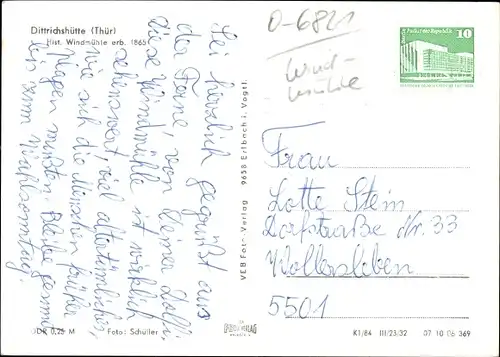 Dittrichshütte (Thür)
Hist. Windmühle erb. 1865
Sei herzlich gegrüßt aus
der Ferne, von Deiner Dolli,
diese Windmühle ist wirklich
sehenswert, viel altertümliches,
wie sich die Menschen früher
plagen mußten. Bleibe gesund
bis zum
DDR 0,25 M
Foto: Schüller
VEB Foto-Verlag 9658 Erlbach i. Vogtl.
O-6821
Wind-
mühle
10
Frau
Lotte Stein
Dorfstraße Nr. 33
Wollersleben
5501
K1/84 III/23/32 07 10 06 369